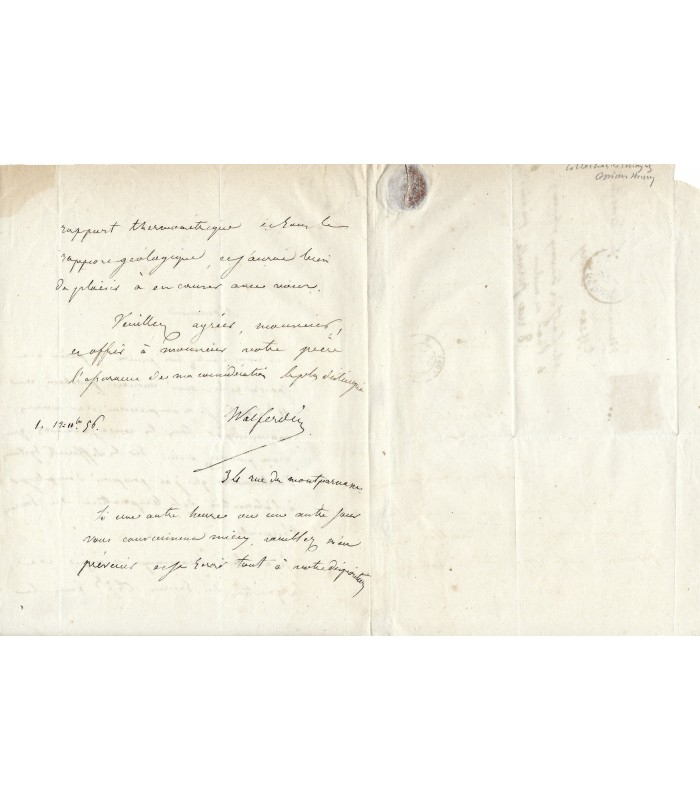 rapport thermométrique et sous le
rapport géologique, et j'aurai bien
du plaisir à en causer avec vous.
Veuillez agréer, monsieur,
et offrir à monsieur votre père
l'assurance de ma considération la plus distinguée
Walferdin
34 rue du montparnasse
Si une autre heure ou un autre jour
vous convenait mieux, veuillez m'en
prévenir et je serai tout à votre disposition